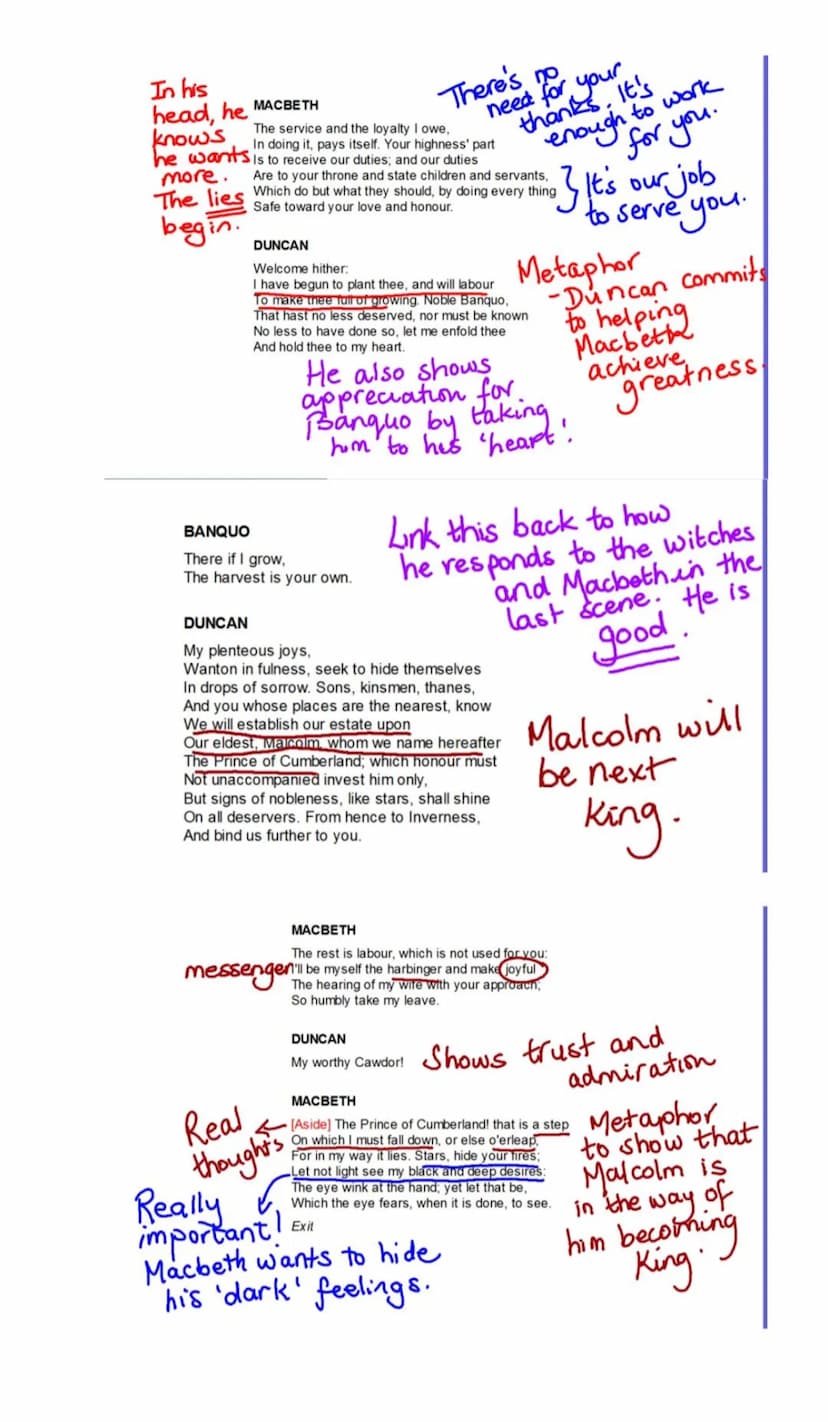 In his
head, he
knows
he wants
more.
The lies
begin.
There's no
need for your
thanks. It's
enough to work
for you.
MACBETH
The service and the loyalty I owe,
In doing it, pays itself. Your highness' part
Is to receive our duties; and our duties
Are to your throne and state children and servants,
Which do but what they should, by doing every thing
Safe toward your love and honour.
} It's our job
to serve you.
DUNCAN
Welcome hither:
I have begun to plant thee, and will labour
To make thee full of growing. Noble Banquo,
That hast no less deserved, nor must be known
No less to have done so, let me enfold thee
And hold thee to my heart.
Metaphor
- Duncan commits
to helping
Macbeth
achieve
greatness.
He also shows
appreciation for
Banquo by taking
him to his 'heart'.
BANQUO
There if I grow,
The harvest is your own.
Link this back to how
he responds to the witches
and Macbeth in the
last scene. He is
good.
DUNCAN
My plenteous joys,
Wanton in fulness, seek to hide themselves
In drops of sorrow. Sons, kinsmen, thanes,
And you whose places are the nearest, know
We will establish our estate upon
Our eldest, Malcolm, whom we name hereafter
The Prince of Cumberland; which honour must
Not unaccompanied invest him only,
But signs of nobleness, like stars, shall shine
On all deservers. From hence to Inverness,
And bind us further to you.
Malcolm will
be next
King.
MACBETH
The rest is labour, which is not used for you:
I'll be myself the harbinger and make joyful
The hearing of my wife with your approach;
So humbly take my leave.
messenger
DUNCAN
My worthy Cawdor!
Shows trust and
admiration
MACBETH
[Aside] The Prince of Cumberland! that is a step
On which I must fall down, or else o'erleap,
For in my way it lies. Stars, hide your fires;
Let not light see my black and deep desires:
The eye wink at the hand; yet let that be,
Which the eye fears, when it is done, to see.
Exit
Real
thoughts
Metaphor
to show that
Malcolm is
in the way of
him becoming
King.
Really
important!
Macbeth wants to hide
his 'dark' feelings.